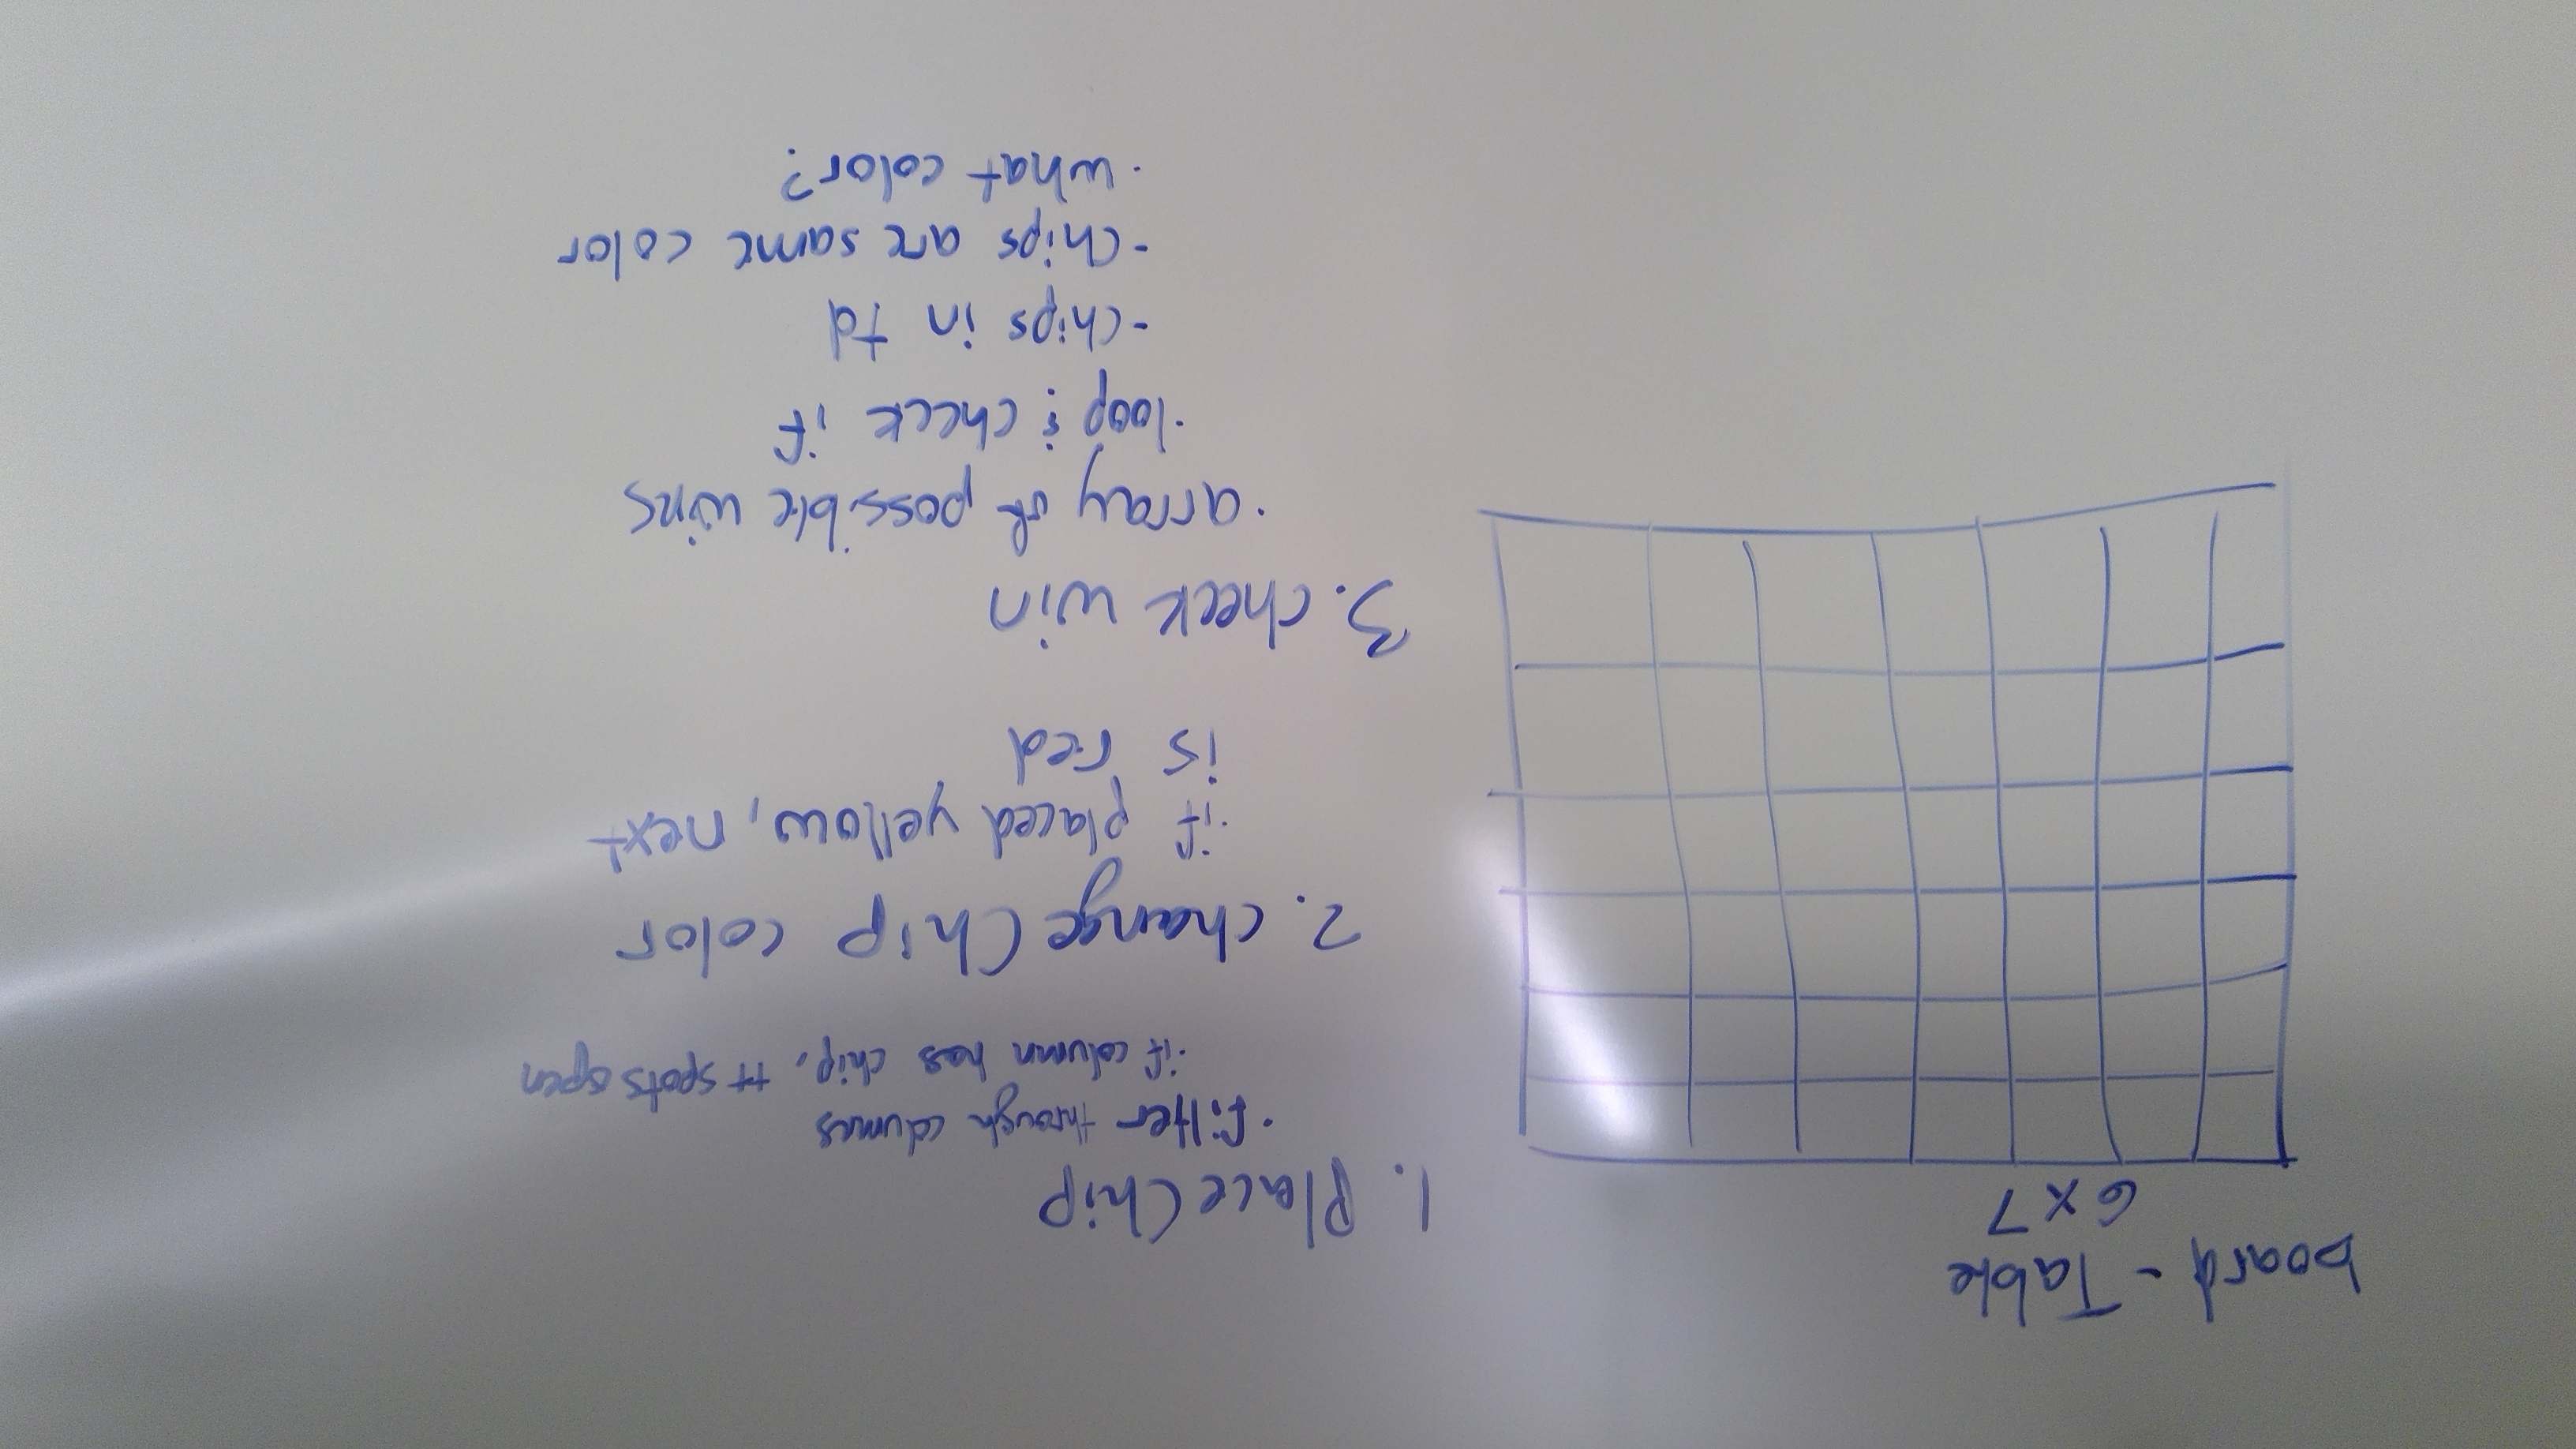 board - Table
6x7
1. PlaceChip
· filter through columns
· if column has chip, # spots open
2. changeChip color
· if placed yellow, next
is red
3. check win
· array of possible wins
· loop & check if
- chips in td
- chips are same color
· what color?